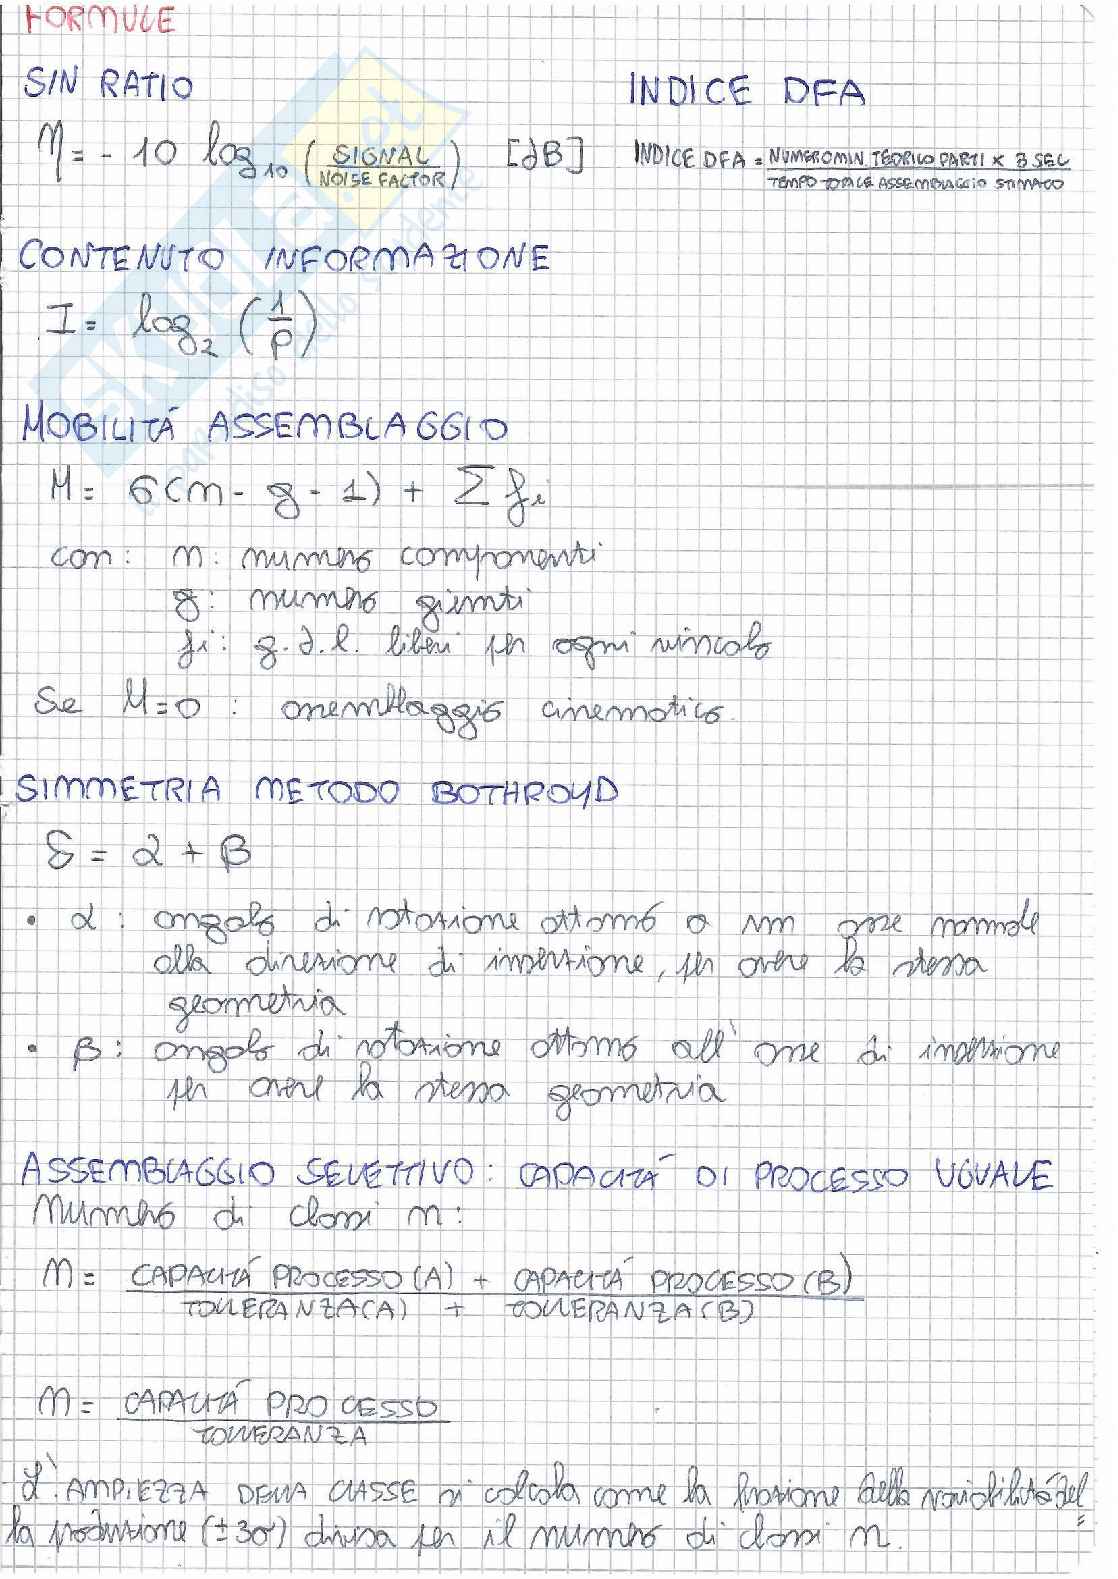 FORMULE
SIN RATIO
INDICE DFA
η = - 10 log₁₀ (SIGNAL / NOISE FACTOR) [dB]
INDICE DFA = NUMERO MIN TEORICO PARTI × 3 SEC / TEMPO TOTALE ASSEMBLAGGIO STIMATO
CONTENUTO INFORMAZIONE
I = log₂ (1/P)
MOBILITÁ ASSEMBLAGGIO
M = 6(n - g - 1) + Σ fi
con: n: numero componenti
g: numero giunti
fi: g.d.l. liberi per ogni vincolo
Se M=0 : assemblaggio cinematico.
SIMMETRIA METODO BOTHROYD
δ = α + β
• α : angolo di rotazione attorno a un asse normale
alla direzione di inserzione, per avere la stessa
geometria
• β : angolo di rotazione attorno all' asse di inserzione
per avere la stessa geometria
ASSEMBLAGGIO SELETTIVO: CAPACITÁ DI PROCESSO UGUALE
Numero di classi n:
n = CAPACITÁ PROCESSO (A) + CAPACITÁ PROCESSO (B) / TOLLERANZA (A) + TOLLERANZA (B)
n = CAPACITÁ PROCESSO / TOLLERANZA
L'AMPIEZZA DELLA CLASSE si calcola come la frazione della variabilitá del
la produzione (±3σ) divisa per il numero di classi n.
SKUOLA.net
il paradiso dello studente